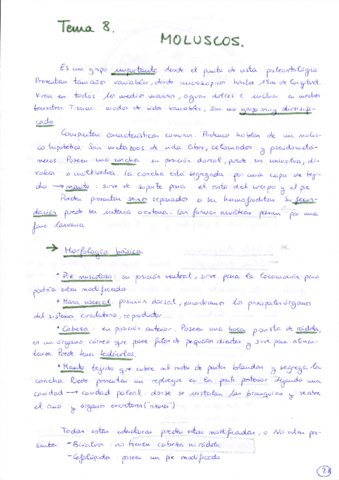 Tema 8.
MOLUSCOS.
Es un grupo importante desde el punto de vista paleontológico
Presentan tamaños variables, desde microscópicos hasta 18m de longitud.
Viven en todos los medios marinos, aguas dulces e incluso en medios
terrestres. Tienen modo de vida variables. Son un grupo muy diversifi-
cado
Comparten características comunes. Podemos hablar de un molus-
co hipotético. Son metazoos de vida libre, celomados y pseudometá-
meros. Poseen una concha en posición dorsal, puede ser univalva, bi-
valva o multivalva. La concha está segregada por una capa de teji-
do → manto: sirve de soporte para el resto del cuerpo y el pie
Pueden presentar sexos separados o ser hermafroditas. Su fecun-
dación puede ser interna o externa. Las formas acuáticas pasan por una
fase larvaria.
→ Morfología básica
· Pie musculoso: en posición ventral, sirve para la locomoción pero
podría estar modificado
· Masa visceral: posición dorsal, encontramos los principales órganos
del sistema circulatorio, reproductor
· Cabeza: en posición anterior. Poseen una boca provista de rádula,
es un órgano córneo que posee filas de pequeños dientes y sirve para alimen-
tarse. Puede tener tentáculos.
· Manto: tejido que cubre al resto de partes blandas y segrega la
concha. Puede presentar un repliegue en la parte posterior dejando una
cavidad → cavidad paleal, donde se instalan las branquias y desemboca
el ano y órganos excretores
Todas estas estructuras pueden estar modificadas, o no estar pre-
sentes: - Bivalvos: no tienen cabeza ni rádula
- Cefalópodos: poseen un pie modificado